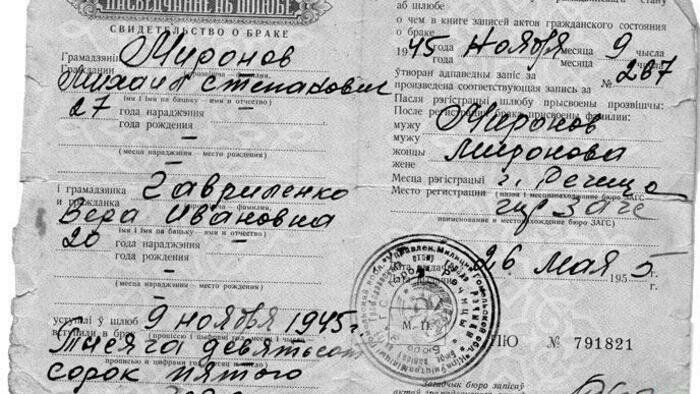 ПАСВЕДЧАННЕ АБ ШЛЮБЕ
СВИДЕТЕЛЬСТВО О БРАКЕ
Грамадзянін Миронов
Гражданин
Михаил Степанович
імя і імя па бацьку — имя и отчество
27 года нараджэння
года рождения —
—
(месца нараджэння — место рождения)
і грамадзянка Гаврыленко
и гражданка
Вера Ивановна
(імя і імя па бацьку — имя и отчество)
20 года нараджэння
года рождения —
—
(месца нараджэння — место рождения)
уступілі ў шлюб 9 ноября 1945 г.
вступили в брак
Тысяча девятьсот
прописью и цифрами год, месяц и число
сорок пятого
аб шлюбе
о чем в книге записей актов гражданского состояния
о браке
1945 года Ноября месяца 9 числа
года месяца числа
утворан адпаведны запіс за
произведена соответствующая запись за № 267
Пасля рэгістрацыі шлюбу прысвоены прозвішчы:
После регистрации брака присвоены фамилии:
мужу Миронов
мужу
жонцы Миронова
жене
Месца рэгістрацыі г. Речица
Место регистрации
наименование и местонахождение бюро ЗАГС)
26 мая 1955 г.
М. П.
№ 791821
Загадчык бюро запісаў